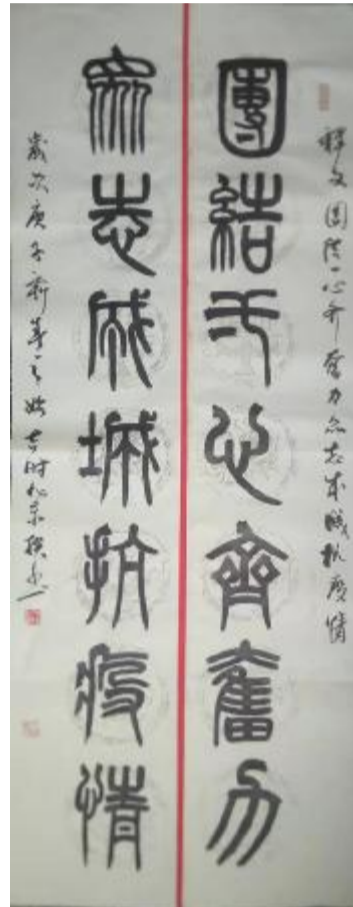 释文团结一心齐奋力众志成城抗疫情
團結弌心齊奮力
眾志成城抗疫情
歲次庚子新春之始吉时